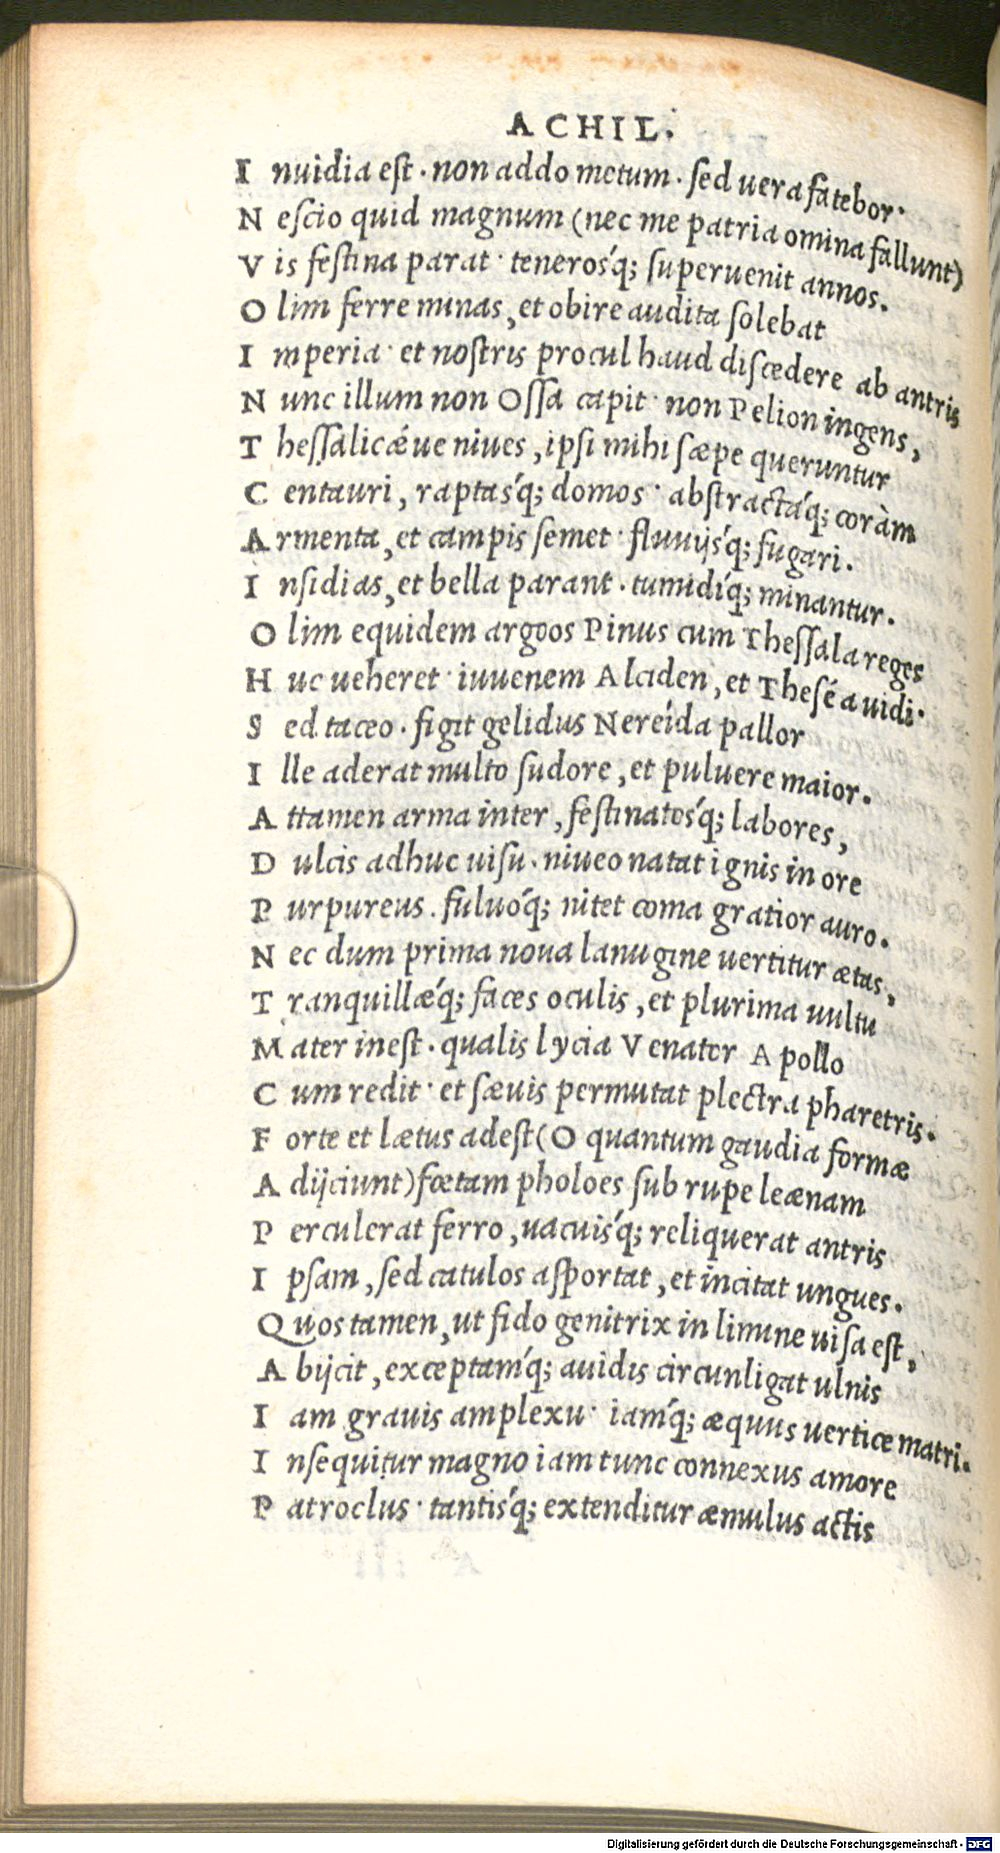 ACHIL.
I nuidia est · non addo metum · sed uera fatebor·
N escio quid magnum (nec me patria omina fallunt)
V is festina parat · tenerosq́; superuenit annos.
O lim ferre minas, et obire audita solebat
I mperia · et nostris procul haud discedere ab antris
N unc illum non Ossa capit · non Pelion ingens,
T hessalicǽue niues, ipsi mihi sæpe queruntur
C entauri, raptasq́; domos · abstractáq́; coràm
A rmenta, et campis semet · fluuijsq́; fugari.
I nsidias, et bella parant · tumidíq́; minantur.
O lim equidem argoos Pinus cum Thessala reges
H uc ueheret · iuuenem Alciden, et Theséa uidi·
S ed taceo · figit gelidus Nereída pallor
I lle aderat multo sudore, et puluere maior.
A ttamen arma inter, festinatosq́; labores,
D ulcis adhuc uisu · niueo natat ignis in ore
P urpureus . fuluóq́; nitet coma gratior auro.
N ec dum prima noua lanugine uertitur ætas,
T ranquillæq́; faces oculis, et plurima uultu
M ater inest · qualis lycia Venator Apollo
C um redit · et sæuis permutat plectra pharetris.
F orte et lætus adest (O quantum gaudia formæ
A dijciunt) fœtam pholoes sub rupe leænam
P erculerat ferro, uacuisq́; reliquerat antris
I psam, sed catulos asportat, et incitat ungues.
Quos tamen, ut fido genitrix in limine uisa est,
A bijcit, exceptamq́; auidis circunligat ulnis
I am grauis amplexu · iamq́; æquus uertice matri.
I nsequitur magno iam tunc connexus amore
P atroclus · tantisq́; extenditur æmulus actis
Digitalisierung gefördert durch die Deutsche Forschungsgemeinschaft - DFG